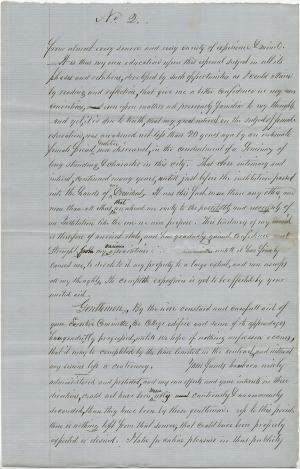 No 2.
from almost every source and every variety of experience & mind.
It is thus my own education upon this special subject in all its
phases and relations, developed by such opportunities as I could obtain
by reading and reflection, that give me a little confidence in my own
convictions, upon matters not previously familiar to my thoughts
and yet, it is due to truth that my good interest in the subject of female
education, was awakened not less than 20 years ago by an intimate
female friend now deceased, in the conductment of a Seminary of
long standing & character in this city. This close intimacy and
interest, continued many years, until just before the institution passed
into the hands of It was this fact more than any other one
more than all others that awakened me early to the possibility and necessity of
an Institution like the one we now propose. This history of my
is therefore of ancient date, and has gradually gained in
through my various until it has finally
caused me, to devote to it my property to a large extent, and now occupies
all my thoughts. Its complete expression is yet to be effected by your
united aid.
Gentlemen, By the wise counsel and careful aid of
your Executive Committee, the College edifice and some of its appendages
have greatly progressed, with no hope of nothing unforeseen occurs,
that it may be completed by the time limited in the contract, and without
any serious loss or controversy. Your funds have been wisely
administered and protected, and my own efforts and your interests in these
directions, could not have been more and uniformly & unanimously
seconded, than they have been by these gentlemen. up to this period,
there is nothing left from that source, that could have been properly
expected or desired. I take pa entire pleasure in thus publicly